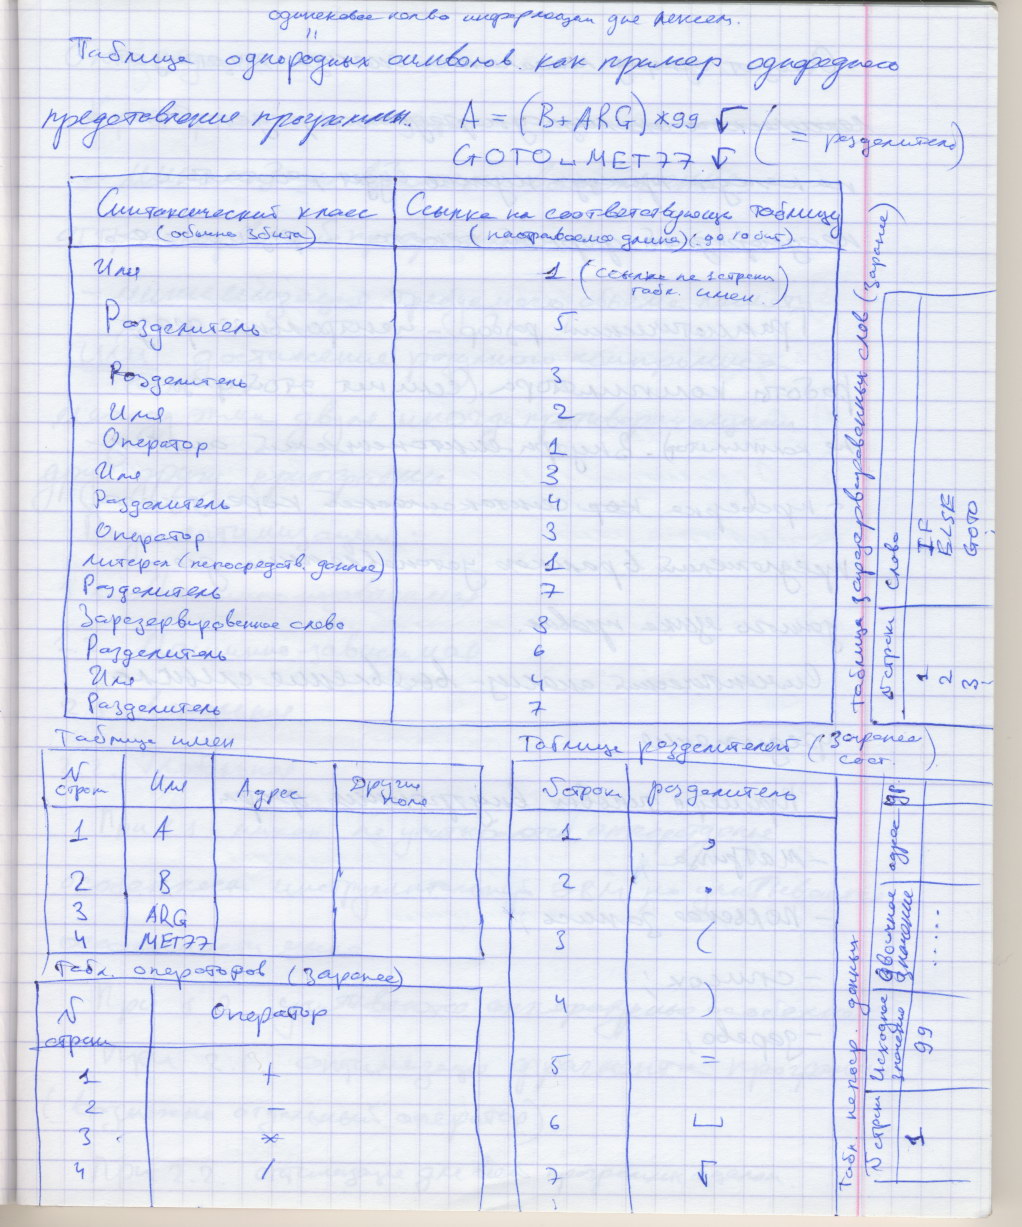 одинаковое кол-во информации для лексем.
Таблица однородных символов. как пример однородного
представления программы. A = (B+ARG)*99 ↵ ( = разделитель)
GOTO␣MET77 ↵
Синтаксический класс Ссылка на соответствующую таблицу
(обычно 3 бита) (настраиваемая длина) (до 10 бит)
Имя 1 (ссылка на 1 строку
табл. имен.)
Разделитель 5
Разделитель 3
Имя 2
Оператор 1
Имя 3
Разделитель 4
Оператор 3
литерал (непосредств. данное) 1
Разделитель 7
Зарезервированное слово 3
Разделитель 6
Имя 4
Разделитель 7
Таблица зарезервированных слов (заранее)
N строки Слово
1 IF
2 ELSE
3 GOTO
Таблица имен
N строки Имя Адрес Другие поля
1 A
2 B
3 ARG
4 MET77
Таблица разделителей (Заранее сост.)
N строки разделитель
1 ,
2 .
3 (
4 )
5 =
6 ␣
7 ↵
Табл. операторов (Заранее)
N строки Оператор
1 +
2 -
3 *
4 /
Табл. непоср. данных
N строки Исходное значение Двоичное значение адрес др.
1 99 .....